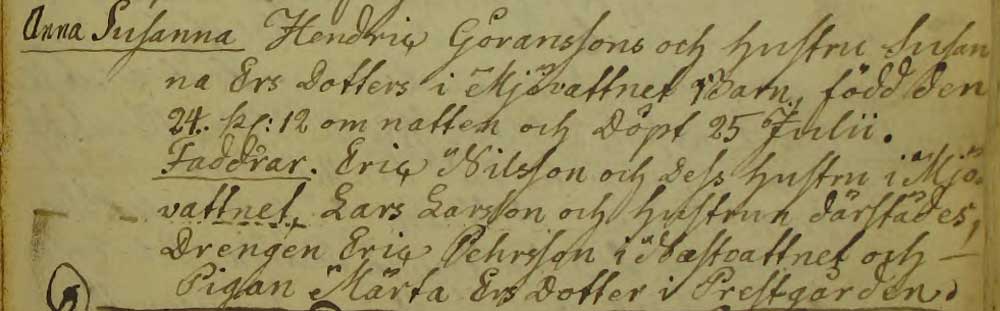 Anna Susanna Hendric Göranssons och hustru Susan
na Ers Dotters i Mjövattnet Barn, född den
24. kl: 12 om natten och Döpt 25 Julii.
Faddrar. Eric Nilsson och Dess hustru i Mjö-
vattnet, Lars Larsson och hustrun därstädes,
Drengen Eric Pehrsson i Næstvattnet och
Pigan Märta Ers Dotter i Prestgården.